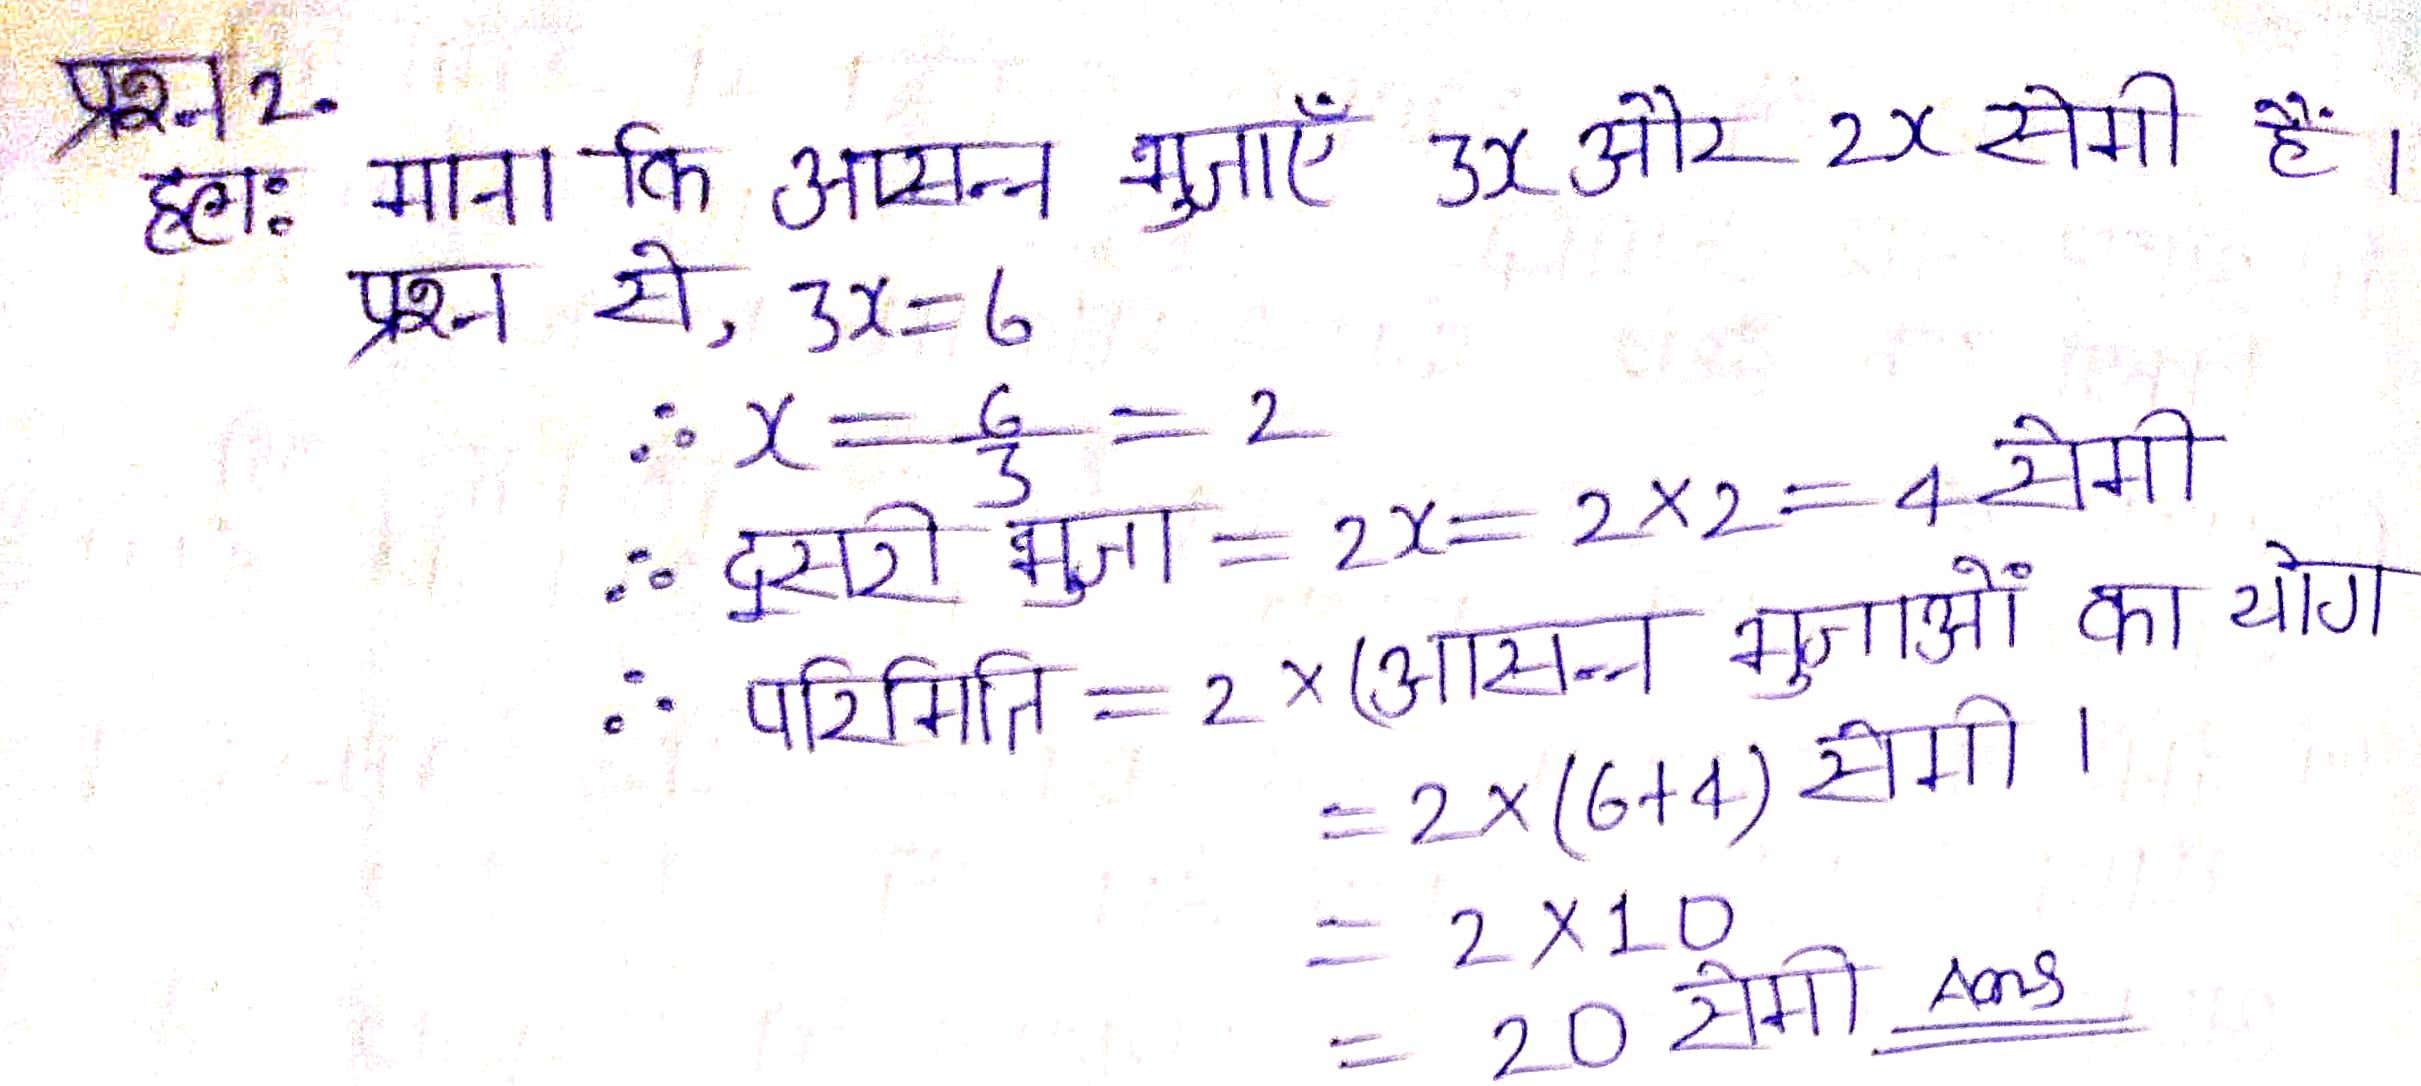 प्रश्न 2.
हलः माना कि आसन्न भुजाएँ 3x और 2x सेमी हैं।
प्रश्न से, 3x = 6
∴ x = 6/3 = 2
∴ दुसरी भुजा = 2x = 2×2 = 4 सेमी
∴ परिमिति = 2×(आसन्न भुजाओं का योग
= 2×(6+4) सेमी।
= 2×10
= 20 सेमी Ans